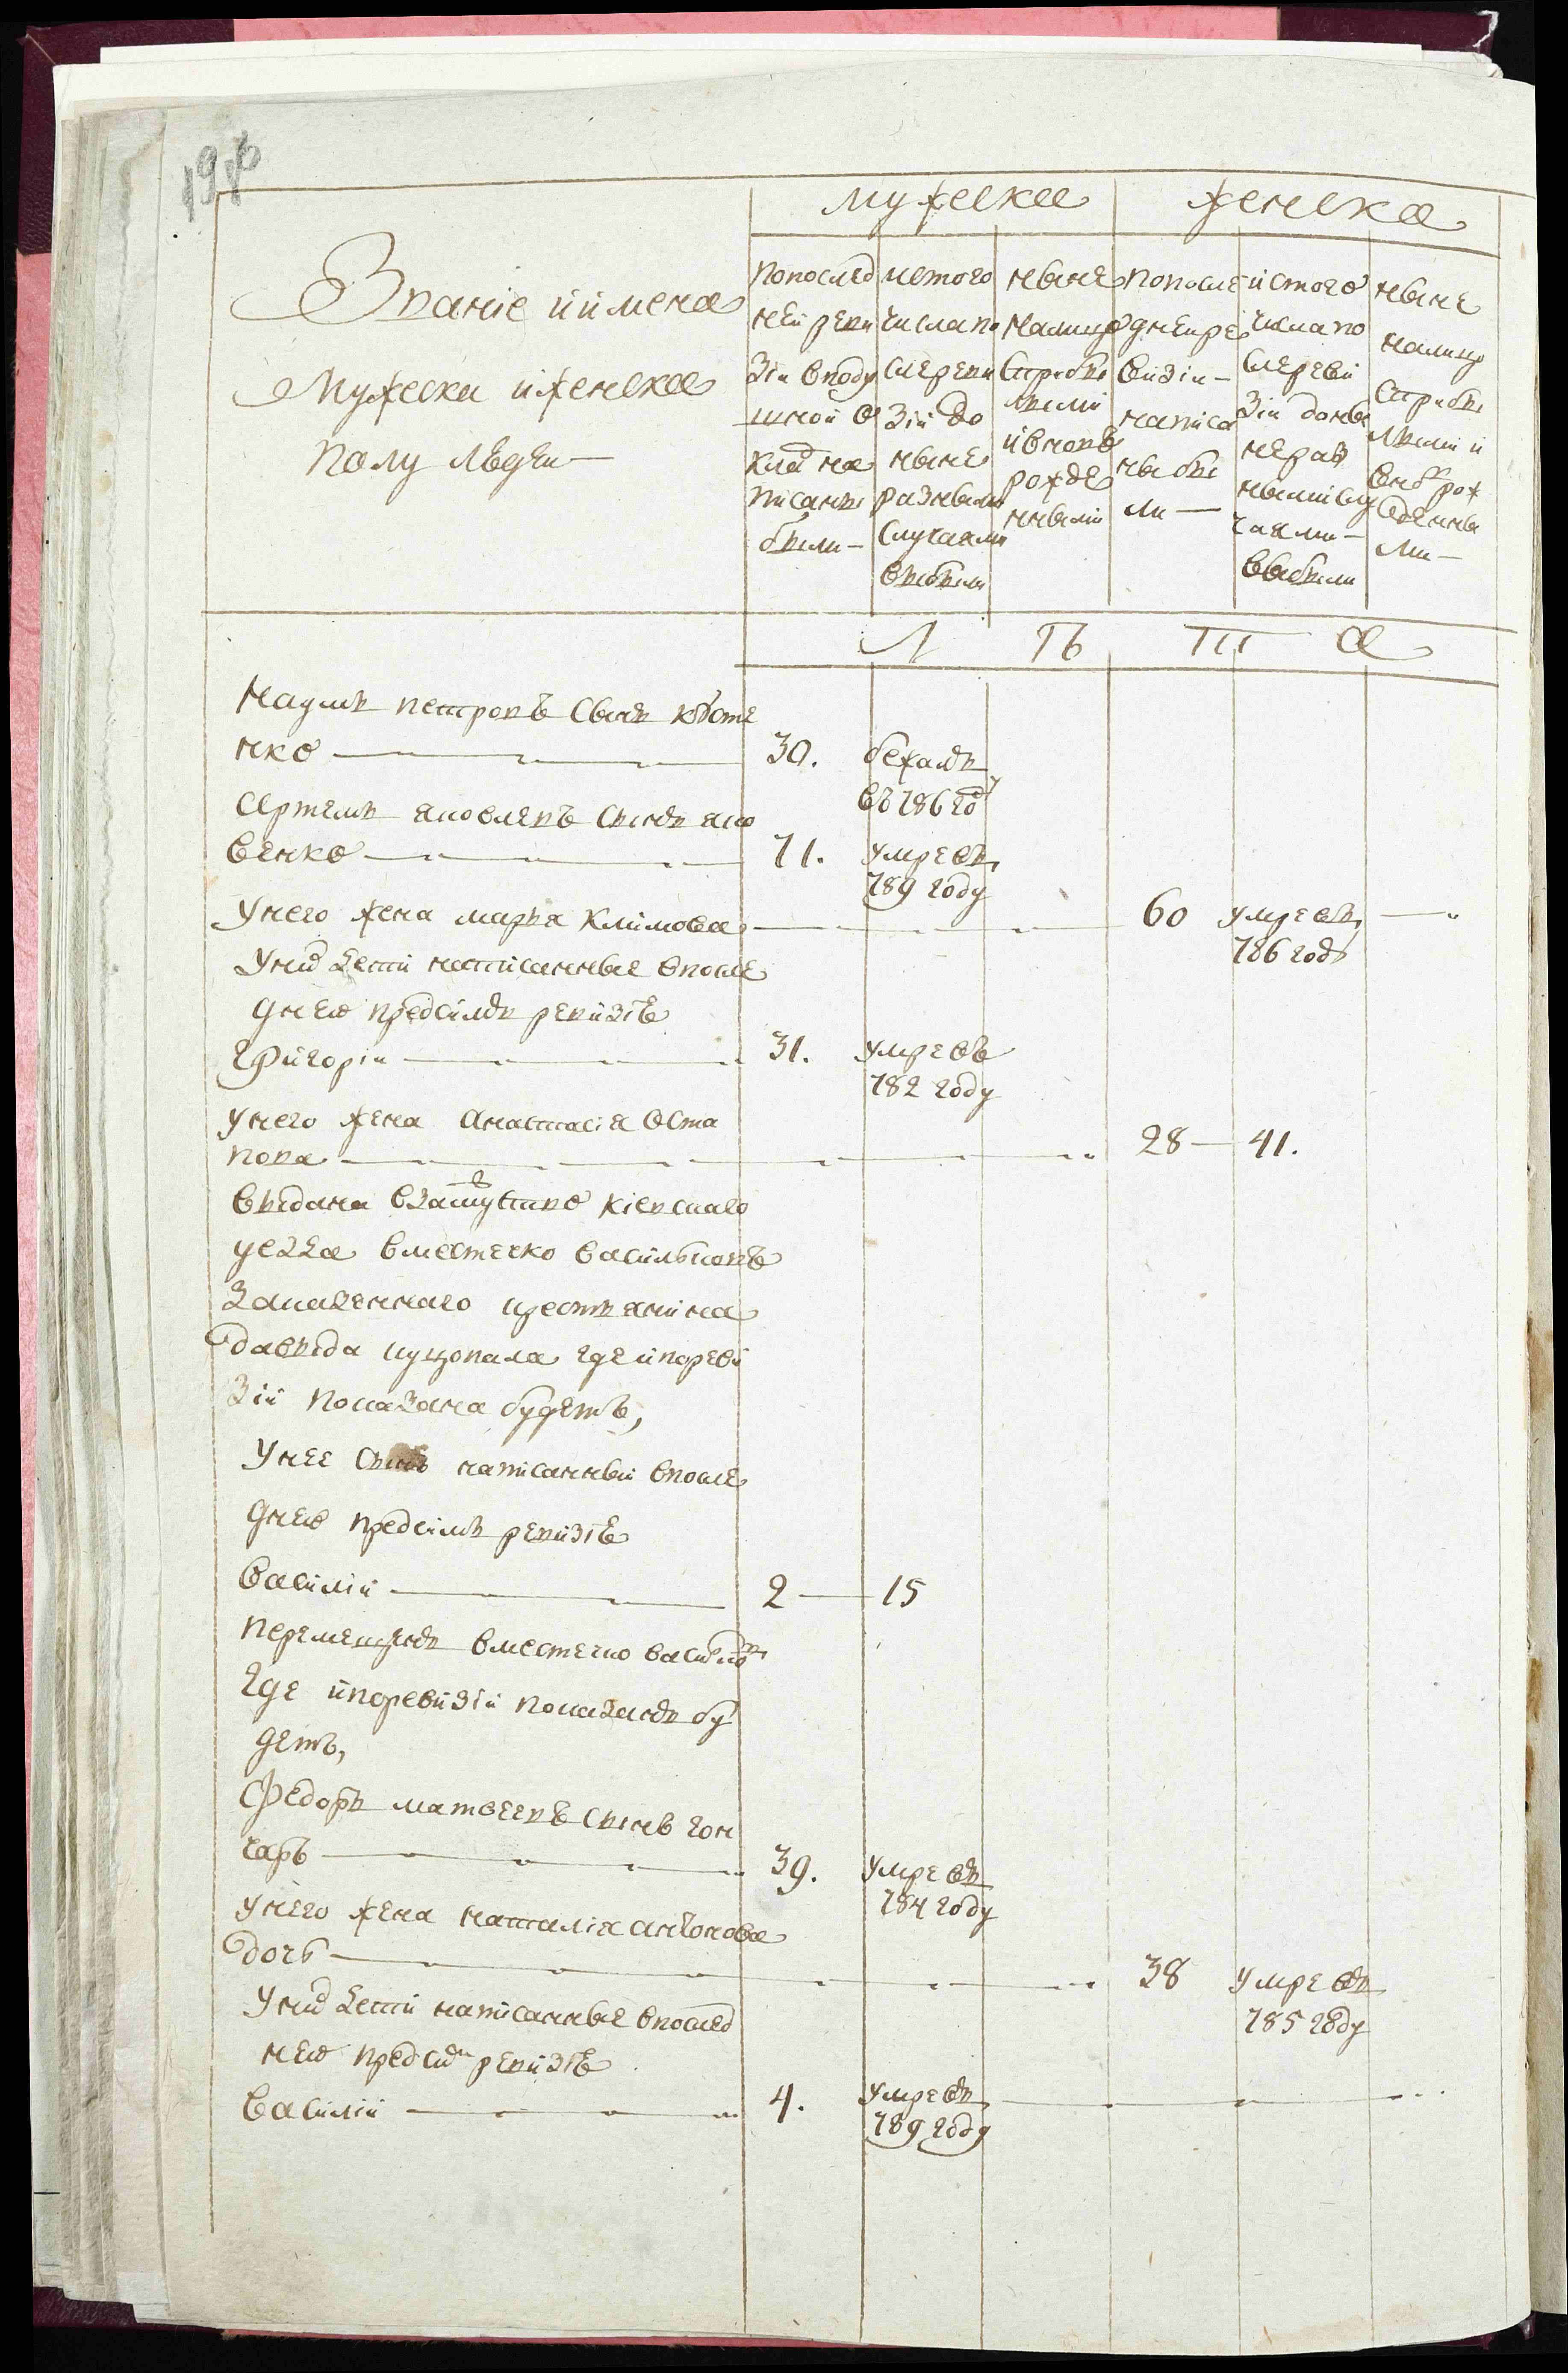 мужеска
женска
Званiе и имена
Мужеска и женска
полу людеи —
по послед
ней реви
зiи в поду
шной о
клад на
писаны
были —
из того
числа по
сле реви
зiи до
ныне
разными
случаями
выбыли
ныне
налицо
с прибы
лыми
и вновь
рожде
нными
по после
дней ре
визiи —
написа
ны бы
ли —
из того
числа по
сле реви
зiи до ны
не раз
ными слу
чаями —
выбыли
ныне
налицо
с прибы
лыми и
вновь рож
денны
ми —
Л Ѣ Т А
Наумъ петровъ сынъ косте
нко — 30. бежалъ
въ 786 год
Артемъ яковлевъ сынъ яко
венко — 71. умре въ
789 году
У него жена марья Климова — 60 умре въ
786 году
У них дети написанные в после
днею пред симъ ревизiю
Григорiи — 31. умре въ
782 году
у него жена Анастасiя Оста
пова — 28 — 41.
выдана в замужство кiевскаго
уезда в местечко васильковъ
за казеннаго крестьянина
давыда где и по реви
зiи показана будетъ,
У нее сынъ написанный в после
днею пред симъ ревизiю
Василiи — 2 — 15
перемещенъ в местечко васильков
где и по ревизiи показанъ бу
детъ,
Федоръ матвеевъ сынъ гон
чаръ — 39. умре въ
784 году
у него жена наталiя антонова
дочь — 38 умре въ
785 году
У них дети написанные в послед
нею пред сим ревизiю
Василiи — 4. умре въ
789 году